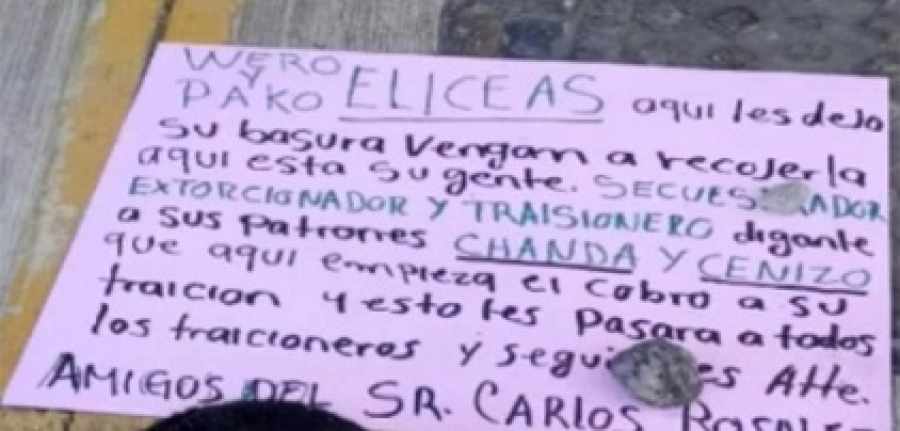 WERO
Y
PAKO ELICEAS aqui les dejo
su basura Vengan a recojerla
aqui esta su gente.
EXTORCIONADOR Y TRAISIONERO diganle
a sus Patrones CHANDA Y CENIZO
que aqui empieza el cobro a su
traicion y esto les Pasara a todos
los traicioneros y Atte.
AMIGOS DEL SR. CARLOS